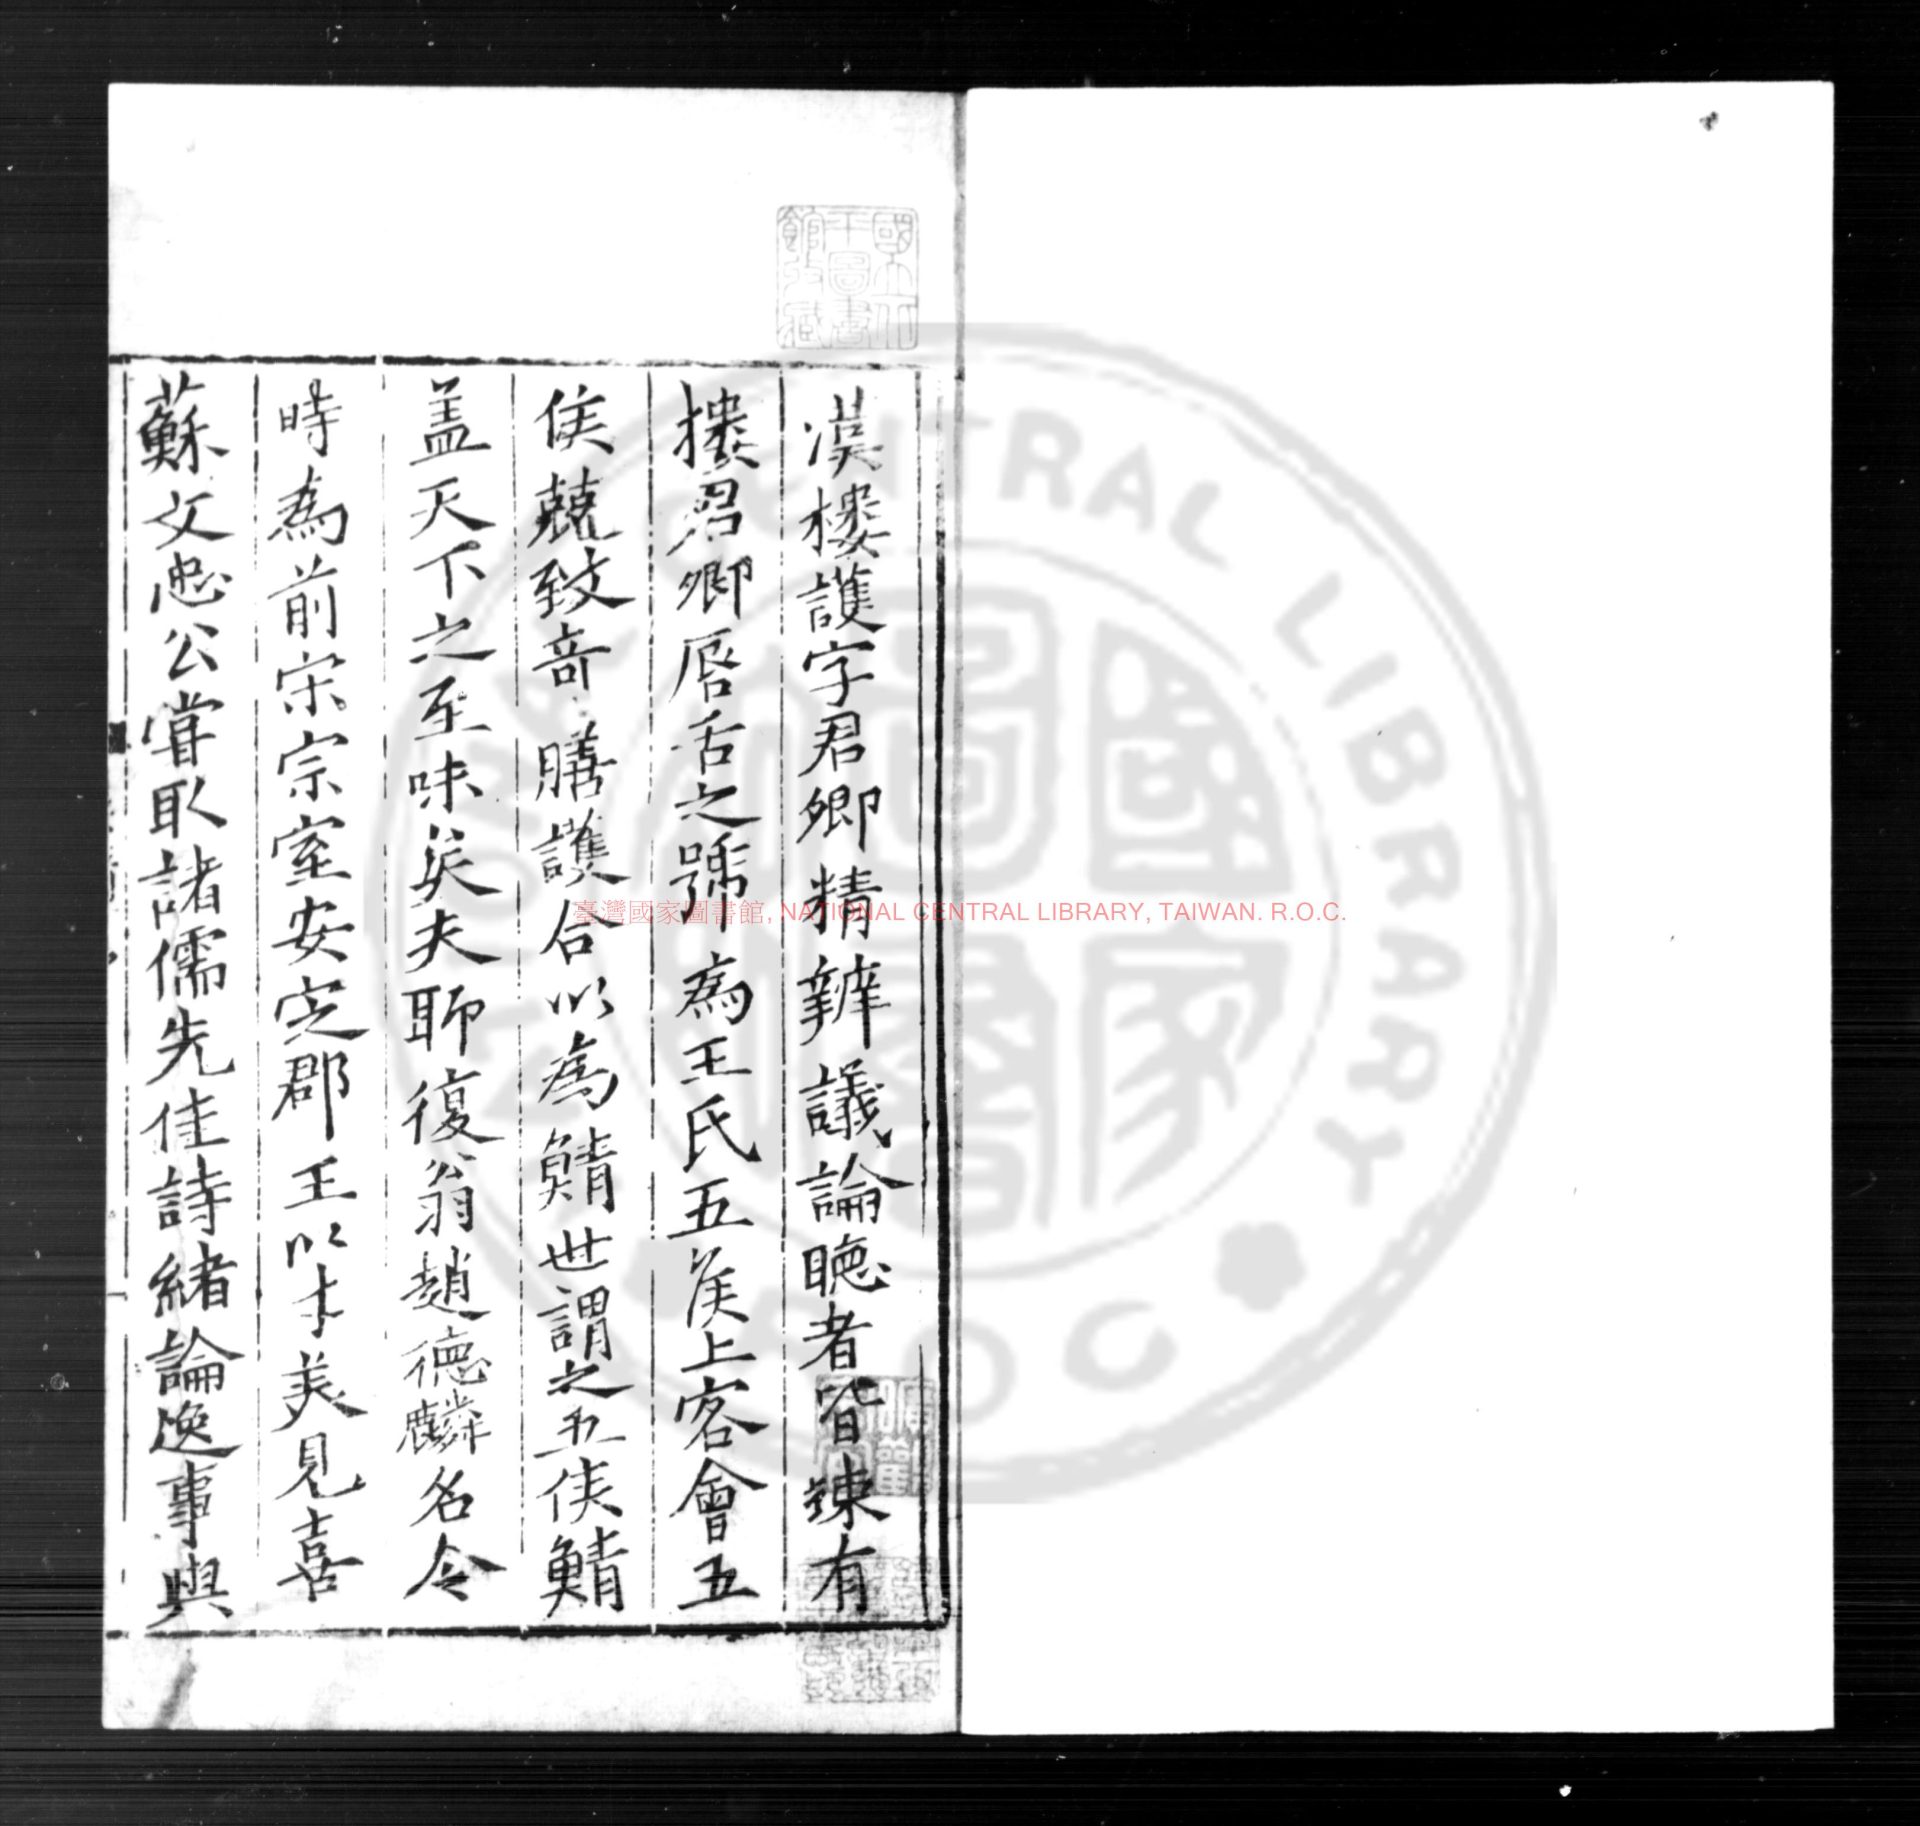 漢樓護字君卿精辨議論聽者皆竦有
摟君卿唇舌之號為王氏五侯上客會五
侯兢致竒膳護合以為鯖世謂之五侯鯖
盖天下之至味矣夫聊復翁趙德麟名令
時為前宋宗室安定郡王以才美見喜
蘇文忠公嘗取諸儒先佳詩緒論逸事與
國立中央圖書館收藏
臺灣國家圖書館, NATIONAL CENTRAL LIBRARY, TAIWAN. R.O.C.